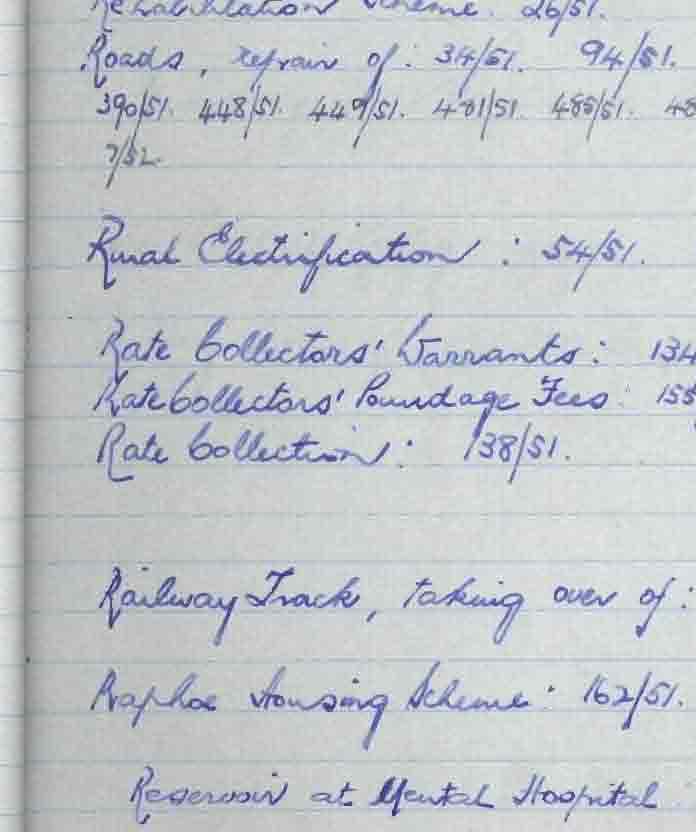 Rehabilitation Scheme. 26/51.
Roads, repair of: 34/51. 94/51.
390/51. 448/51. 449/51. 481/51. 485/51. 48
7/52.
Rural Electrification: 54/51.
Rate Collectors' Warrants: 134
Rate Collectors' Poundage Fees: 155
Rate Collection: 138/51.
Railway Track, taking over of:
Raphoe Housing Scheme: 162/51.
Reservoir at Mental Hospital